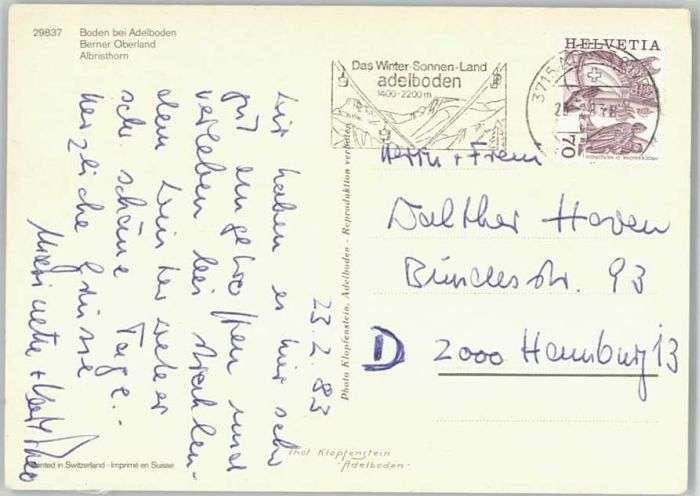 29837 Boden bei Adelboden
Berner Oberland
Albristhorn
Das Winter-Sonnen-Land
adelboden
1400-2200 m
3715 A
HELVETIA
70
23.2.83
Wir haben es hier sehr
gut eingetroffen und
verleben bei strahlen-
dem Winterwetter
sehr schöne Tage.-
Herzliche Grüsse
Photo Klopfenstein, Adelboden - Reproduktion verboten
Herrn + Frau
Walther Haven
Bundesstr. 93
D 2000 Hamburg 13
Printed in Switzerland - Imprimé en Suisse
Phot Klopfenstein
-Adelboden-